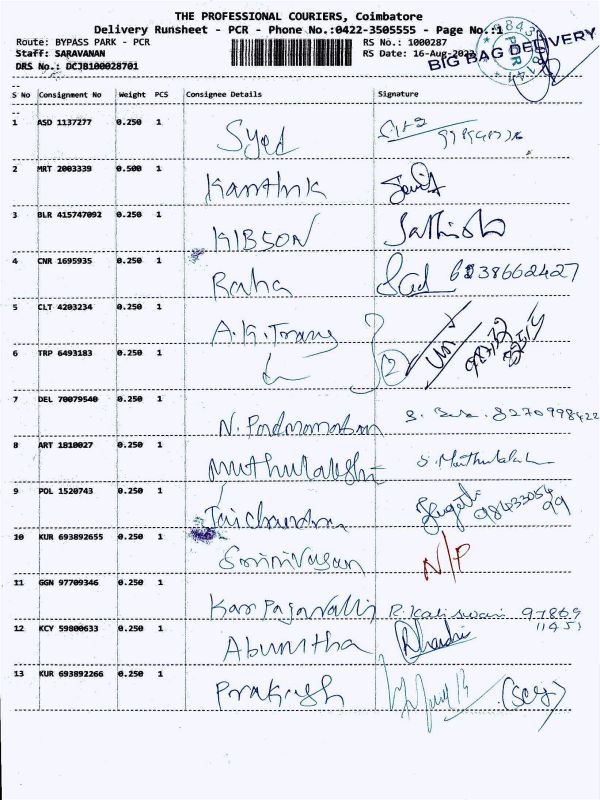 THE PROFESSIONAL COURIERS, Coimbatore
Delivery Runsheet - PCR - Phone No.:0422-3505555 - Page No.:1
Route: BYPASS PARK - PCR RS No.: 1000287
Staff: SARAVANAN RS Date: 16-Aug-2023
DRS No.: DCJB100028701
BIG BAG DELIVERY
PCR
S No Consignment No Weight PCS Consignee Details Signature
1 ASD 1137277 0.250 1 Syed
2 MRT 2003339 0.500 1 Karthik
3 BLR 415747092 0.250 1 KIBSON Sathish
4 CNR 1695935 0.250 1 Raha 6838662427
5 CLT 4203234 0.250 1 A.K. Trans
6 TRP 6493183 0.250 1 2
7 DEL 70079540 0.250 1 N. Padmanaban 8270998422
8 ART 1810027 0.250 1 Muthulakshi S. Muthulaksh
9 POL 1520743 0.250 1 Jaichandra
10 KUR 693892655 0.250 1 Srinivasan N/P
11 GGN 97709346 0.250 1 Karpagavalli R. Kaliswari 97869
11451
12 KCY 59800633 0.250 1
13 KUR 693892266 0.250 1 Prakash